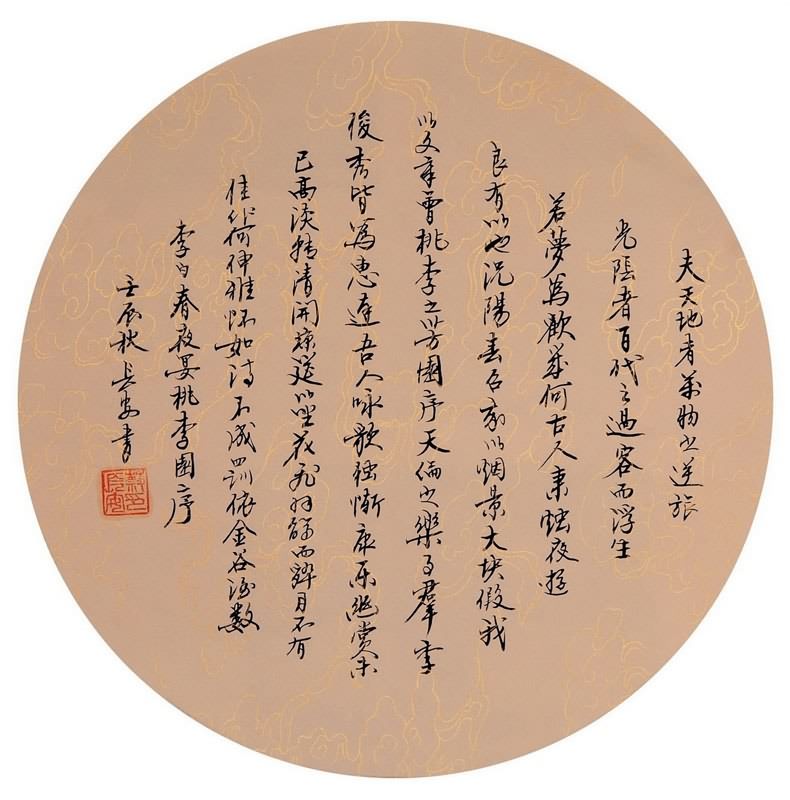 夫天地者萬物之逆旅
光陰者百代之過客而浮生
若夢為歡幾何古人秉燭夜遊
良有以也況陽春召我以烟景大块假我
以文章會桃李之芳園序天倫之樂事羣季
俊秀皆為惠連吾人咏歌獨慚康樂幽賞未
已高談轉清開瓊筵以坐花飛羽觴而醉月不有
佳作何伸雅怀如詩不成罰依金谷酒數
李白春夜宴桃李園序
壬辰秋長安書